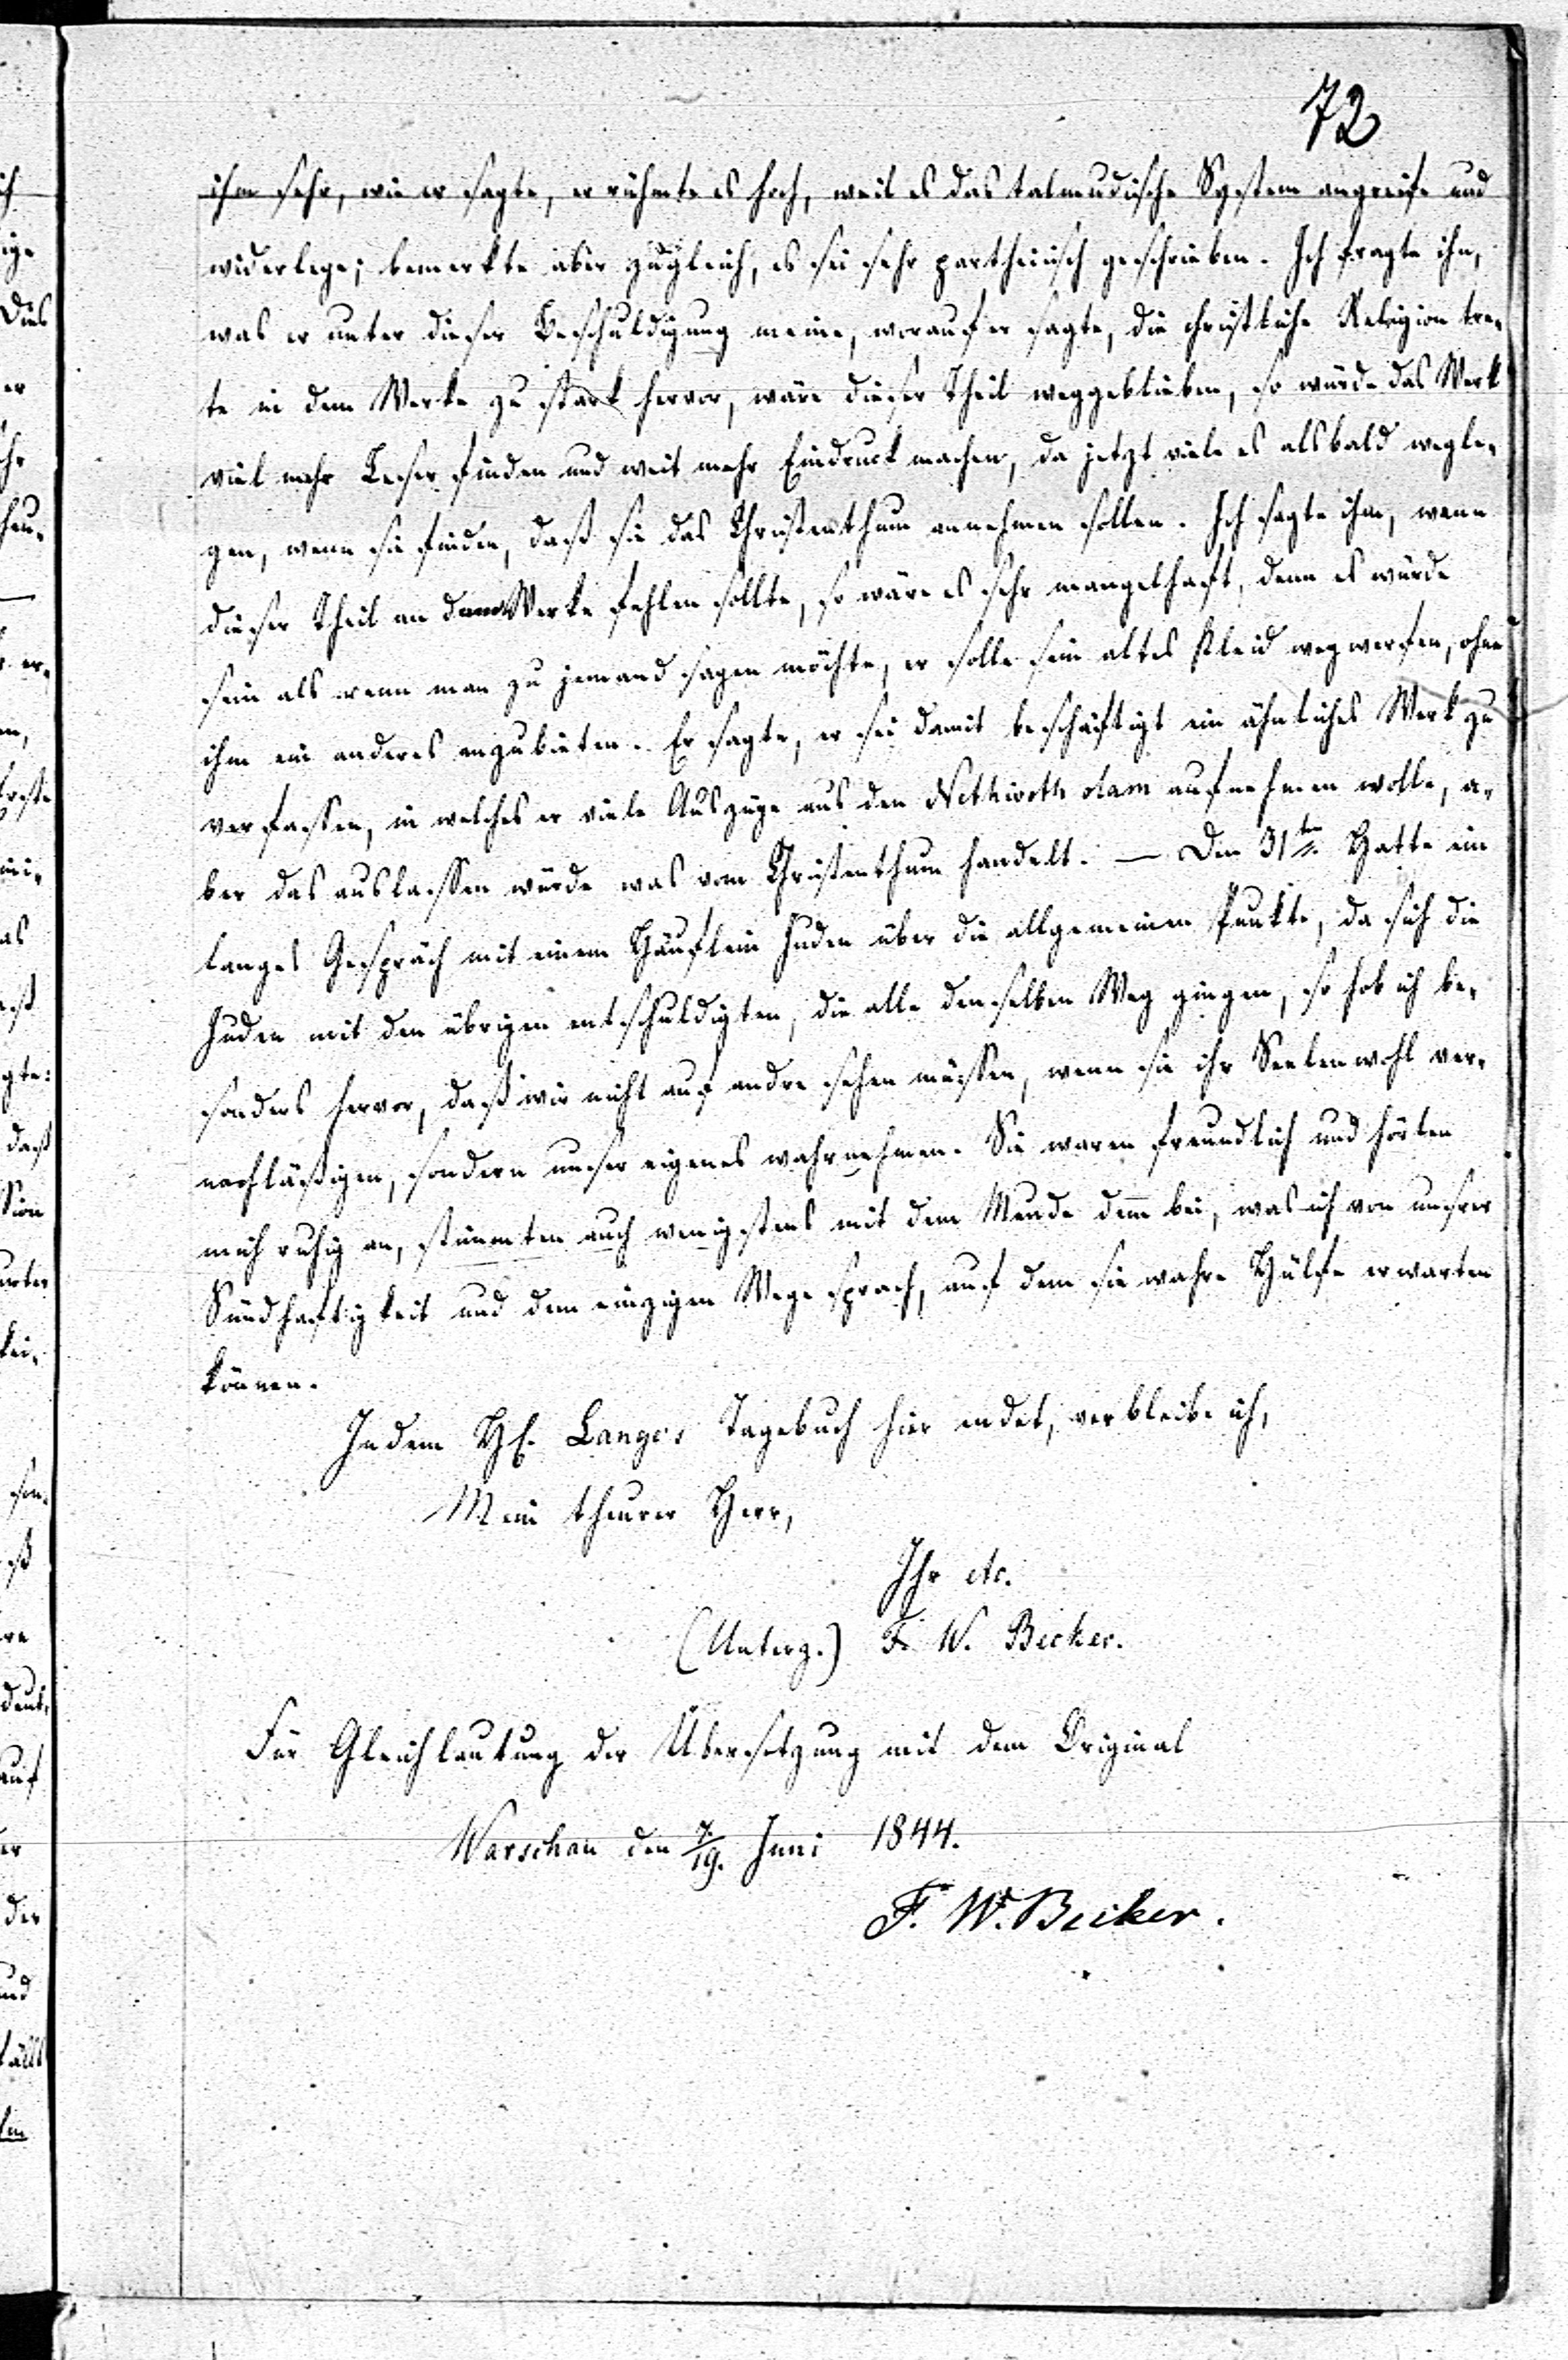 72
ihm sehr, wie er sagte, er rühmte es hoch, weil es das talmudische System angreife und
widerlege; bemerkte aber zugleich, es sei sehr partheiisch geschrieben. Ich fragte ihn,
was er unter dieser Beschuldigung meine, worauf er sagte, die christliche Religion tre-
te in dem Werke zu stark hervor, wäre dieser Theil weggeblieben, so würde das Werk
viel mehr Leser finden und weit mehr Eindruck machen, da jetzt viele es alsbald wegle-
gen, wenn sie finden, daß sie das Christenthum annehmen sollen. Ich sagte ihm, wenn
dieser Theil an dem Werke fehlen sollte, so wäre es sehr mangelhaft, denn es würde
sein als wenn man zu jemand sagen möchte, er solle sein altes Kleid wegwerfen, ohne
ihm ein anderes anzubieten. Er sagte, er sei damit beschäftigt ein ähnliches Werk zu
verfassen, in welches er viele Auszüge aus den Nethivoth olam aufnehmen wolle, a-
ber das auslassen würde was vom Christenthum handelt. — Den 31ten Hatte ein
langes Gespräch mit einem Häuflein Juden über die allgemeinen Punkte, da sich die
Juden mit den übrigen entschuldigten, die alle denselben Weg gingen, so hob ich be-
sonders hervor, daß wir nicht auf andre sehen müssen, wenn sie ihr Seelenwohl ver-
nachläßigen, sondern unser eigenes wahrnehmen. Sie waren freundlich und hörten
mich ruhig an, stimmten auch wenigstens mit dem Munde dem bei, was ich von unsrer
Sündhaftigkeit und dem einzigen Wege sprach, auf dem sie wahre Hülfe erwarten
können.
Indem H. Lange's Tagebuch hier endet, verbleibe ich,
Mein theurer Herr,
Ihr etc.
(Unterz.) F. W. Becker.
Für Gleichlautung der Übersetzung mit dem Original
Warschau den 7/19. Juni 1844.
F. W. Becker.